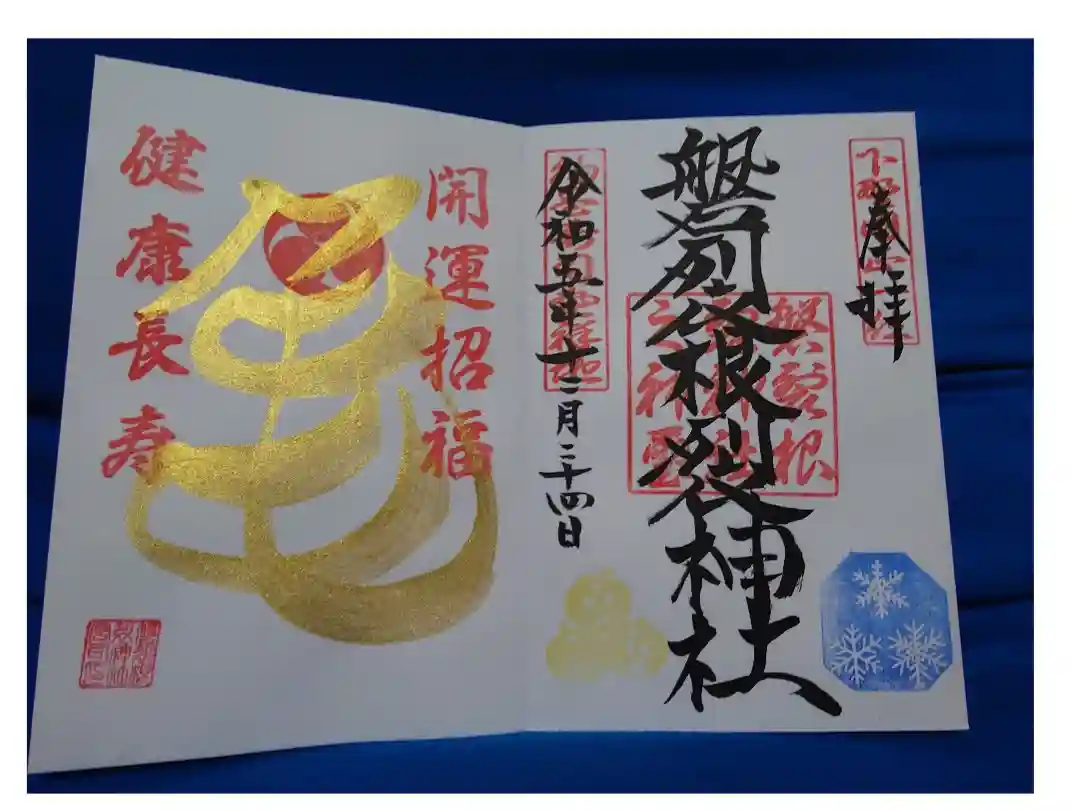 奉拝
磐裂根裂神社
磐裂根
裂神社
之神璽
令和五年十二月二十四日
開運招福
亀
健康長寿